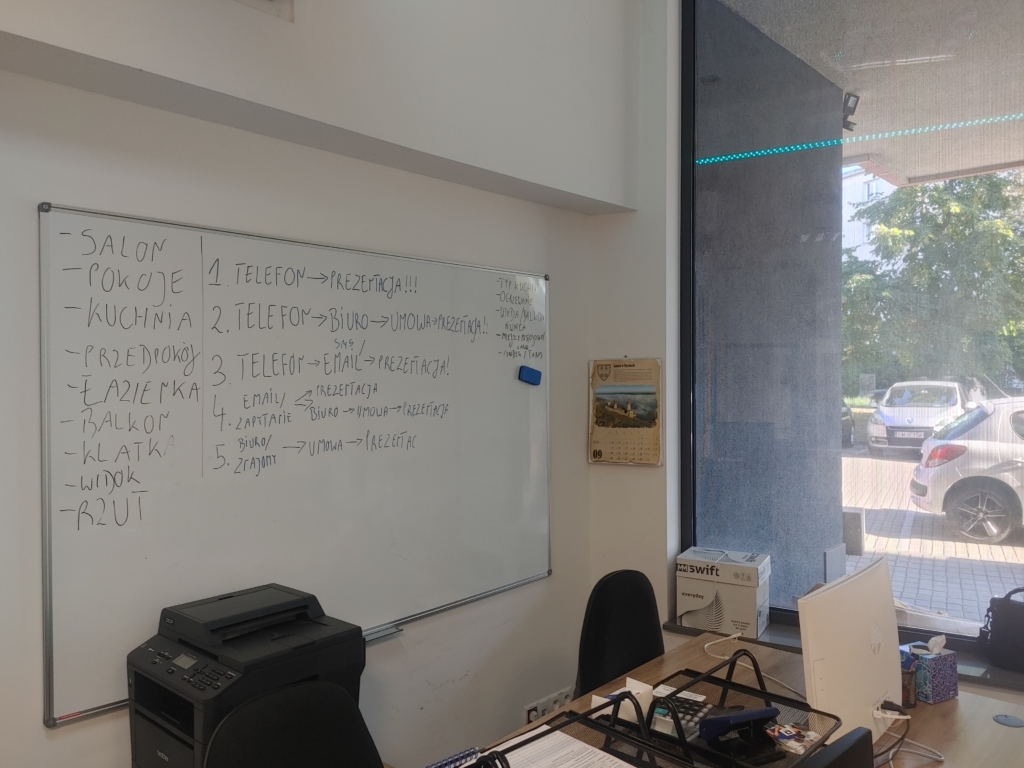 - SALON
- POKOJE
- KUCHNIA
- PRZEDPOKÓJ
- ŁAZIENKA
- BALKON
- KLATKA
- WIDOK
- RZUT
1. TELEFON → PREZENTACJA!!!
2. TELEFON → BIURO → UMOWA → PREZENTACJA!!
3. TELEFON → EMAIL → PREZENTACJA!
4. EMAIL/ PREZENTACJA
ZAPYTANIE BIURO → UMOWA → PREZENTACJA
5. BIURO/ → UMOWA → PREZENTAC
ZNAJOMY
- TYP KUCHNI
- OGRZEWANIE
09
swift
everyday
brother